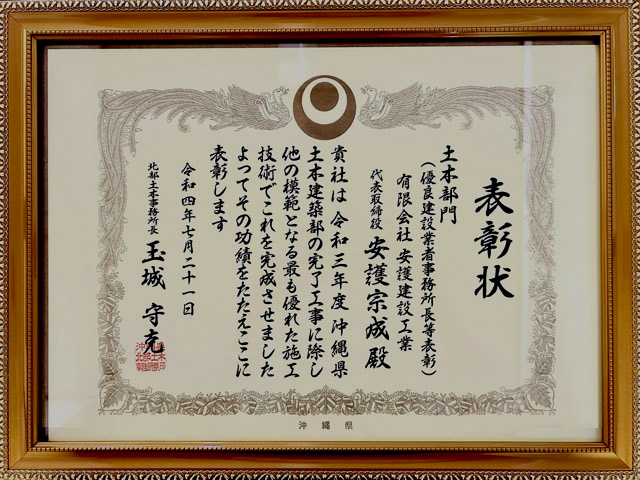 表彰状
土木部門
(優良建設業者事務所長等表彰)
有限会社 安護建設工業
代表取締役 安護宗成殿
貴社は令和三年度沖縄県
土木建築部の完了工事に際し
他の模範となる最も優れた施工
技術でこれを完成させました
よってその功績をたたえここに
表彰します
令和四年七月二十一日
北部土木事務所長 玉城 守克
沖縄県